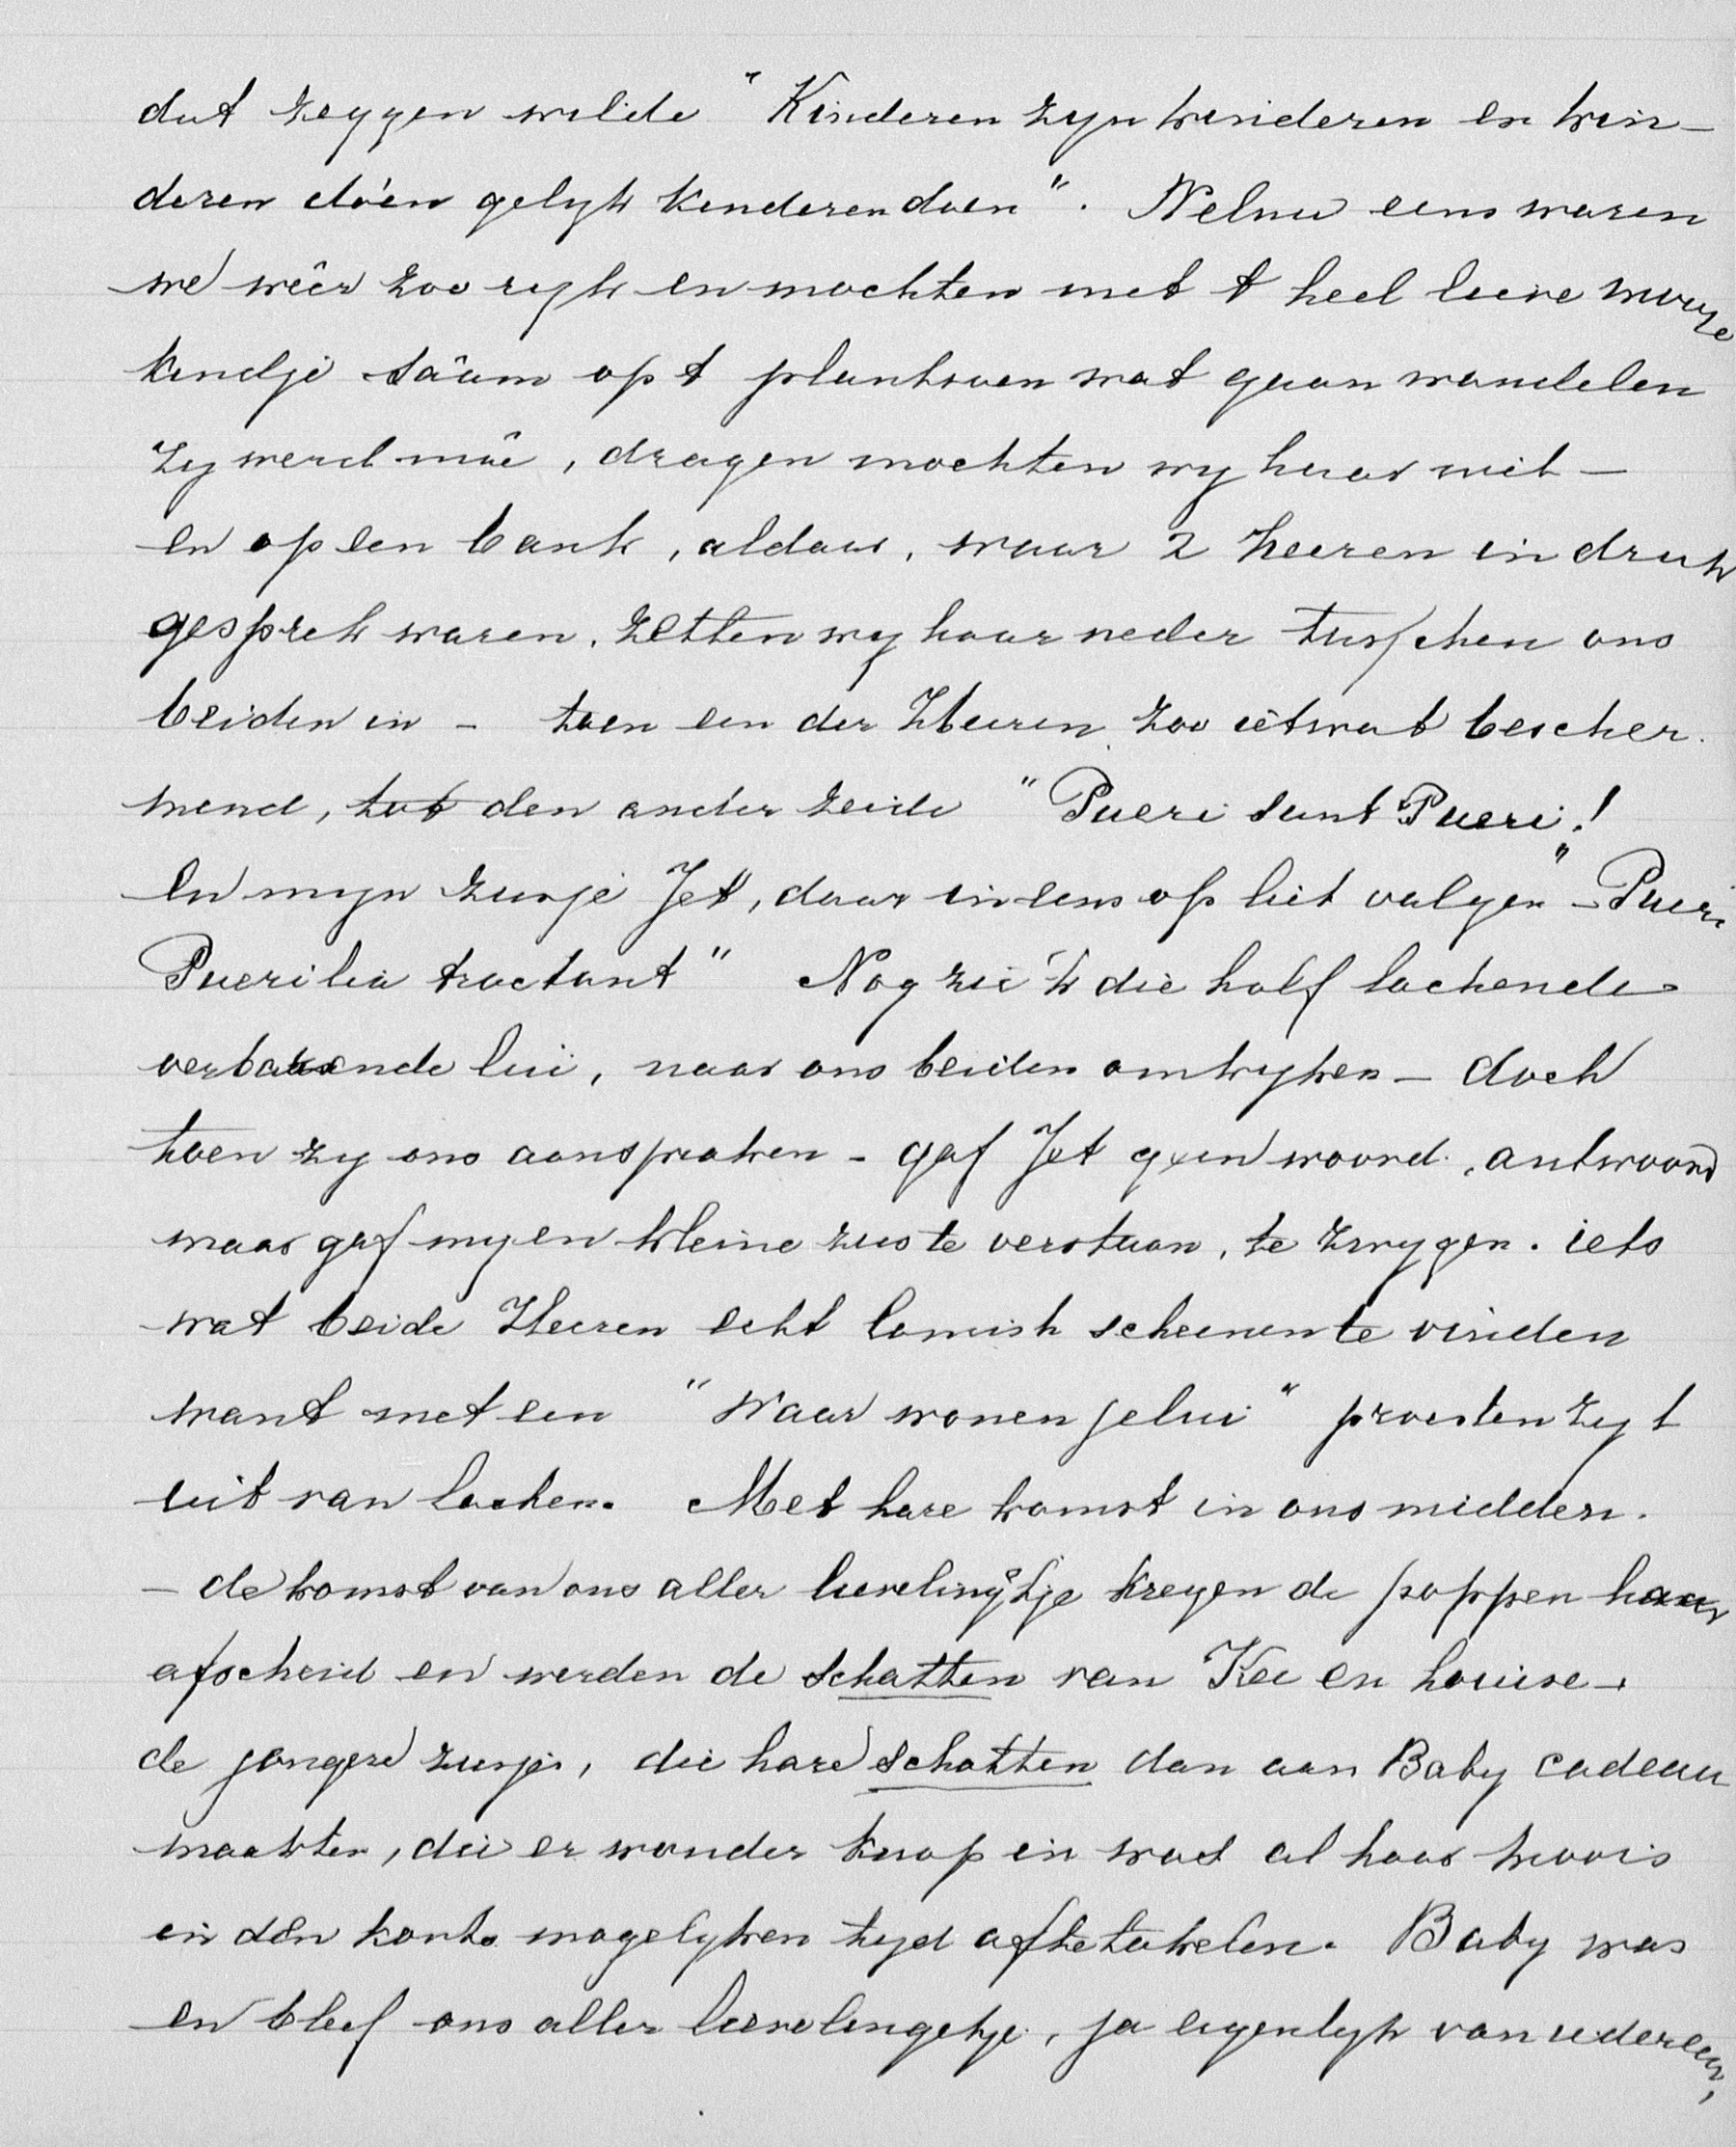 dat zeggen wilde "Kinderen zyn kinderen en kin-
deren dóen gelyk kinderen doen". Welnu eens waren
we wêer zoo ryk en mochten met t heel lieve mooye
kindje sâam op t plantsoen wat gaan wandelen
zy werd môe, dragen mochten wy haar niet -
en op een bank, aldaar, waar 2 heeren in druk
gesprek waren, zetten wy haar neder tusschen ons
beiden in - toen een der Heeren zoo ietwat bescher-
mend, tot den ander zeide "Pueri sunt Pueri!"
En myn zusje Jet, daar ineens op liet volgen "- Pueri
Puerilia tractant" Nog zie 'k die half lachende
verbazende lui, naar ons beiden omkyken - doch
toen zy ons aanspraken - gaf Jet geen woord antwoord
maar gaf my en kleine zus te verstaan, te zwygen. iets
wat beide Heeren echt komisk scheenen te vinden
want met een "Waar wonen jelui" proesten zy t
uit van lachen. Met hare komst in ons midden.
- de komst van ons aller lievelingetje kregen de poppen haar
afscheid en werden de schatten van Kee en Louise -
de jongere zusjes, die hare schatten dan aan Baby cadeau
maakten, die er wonder knap in was al haar moois
in den korts mogelyken tyd af te takelen. Baby was
en bleef ons aller lievelingetje, ja eigenlyk van iedereen,